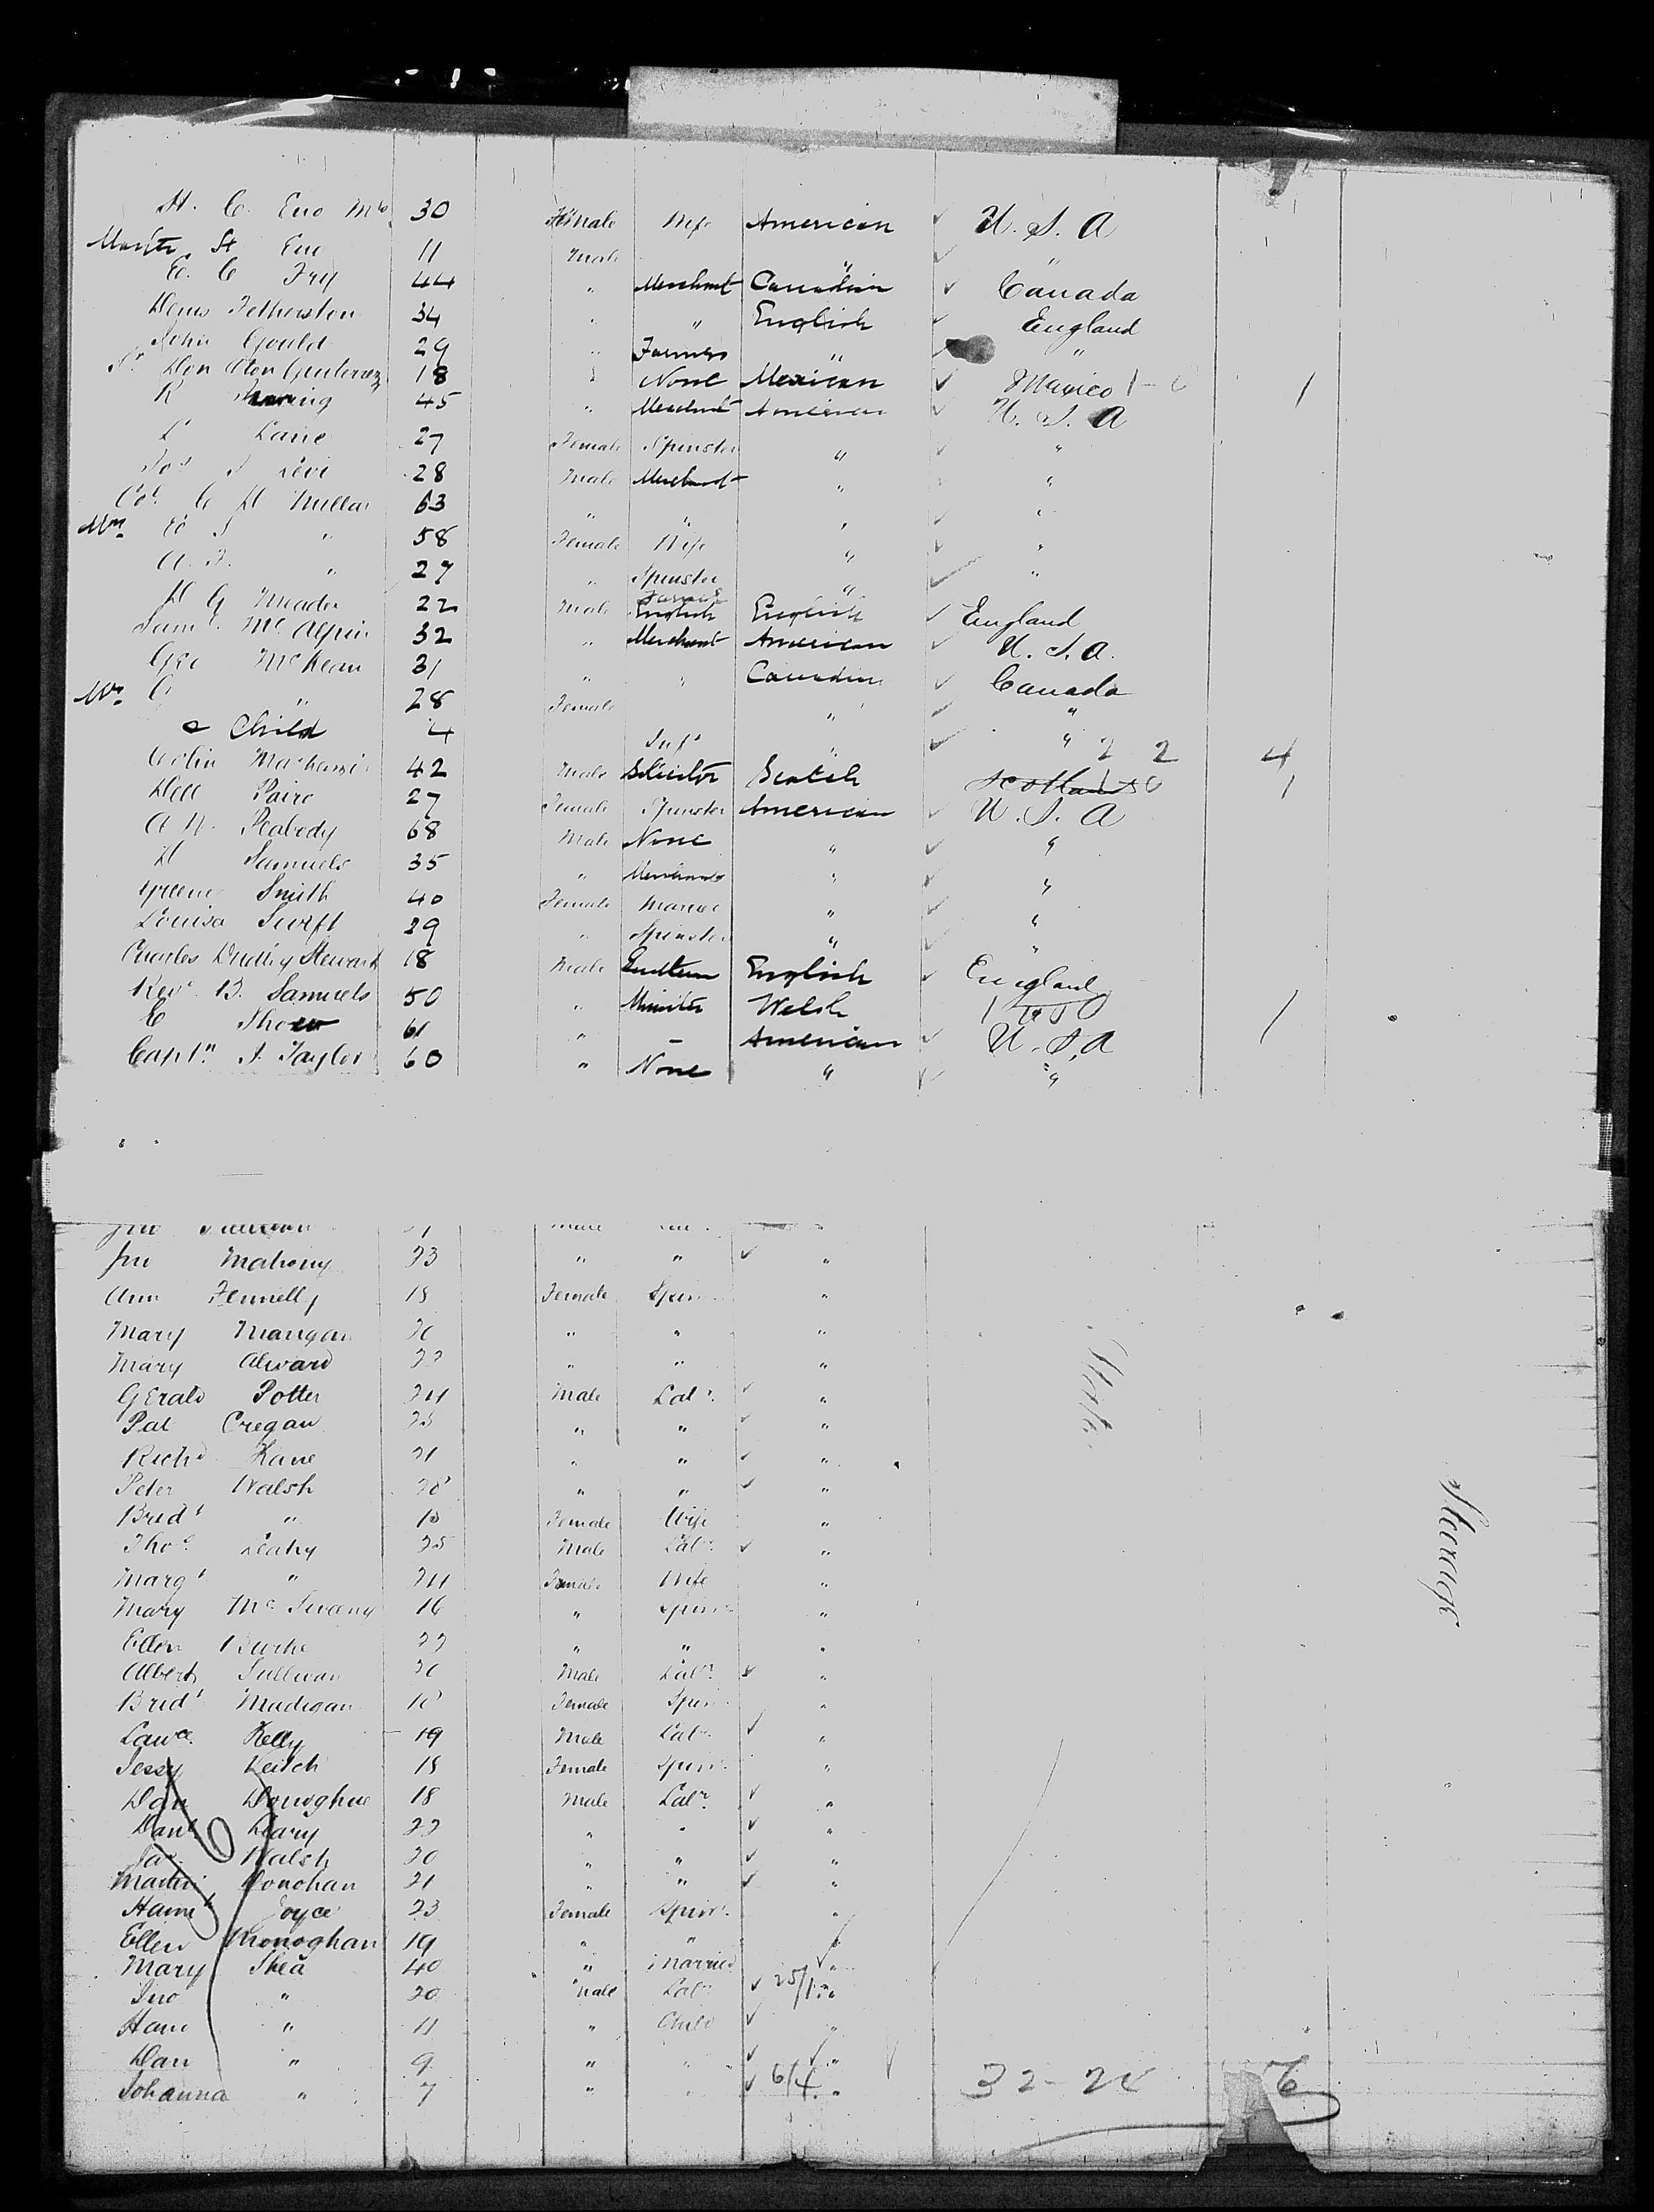 H. C. Eno Mrs 30 Female Wife American U. S. A
Master St Eno 11 Male " "
E. C. Fry 44 " Merchant Canadian Canada
Denis Fetherston 34 " " English England
John Gould 29 " Farmer " "
Sr Don Aton Gutierrez 18 " None Mexican Mexico 1 - 0 1
R 45 " Merchant American U. S. A
L Lane 27 Female Spinster " "
Jos S Levi 28 Male Merchant " "
Col C H Millar 63 " " " "
Mrs E S " 58 Female Wife " "
A. F. " 27 " Spinster " "
H G Meador 22 Male Farmer English English England
Saml McAlpin 32 " Merchant American U. S. A.
Geo McKean 31 " " Canadian Canada
Mrs G " 28 Female " "
& Child 4 Inft " " 2 2 4
Colin Mackenzie 42 Male Solicitor Scotch Scotland 1
Dell Paire 27 Female Spinster American U. S. A
A N. Peabody 68 Male None " "
H Samuels 35 " Merchant " "
Greene Smith 40 Female Married " "
Louisa Swift 29 " Spinster " "
Charles Dudley Stewart 18 Male Gentleman English England
Rev. B. Samuels 50 " Minister Welsh 1
E Shoew 61 " - American U. S. A
Captn A. Taylor 60 " None " "
Jno Mahony 23 " " "
Ann Fennelly 18 Female Spin "
Mary Mangan 20 " " "
Mary Alward 22 " " "
Gerald Potter 24 Male Labr. "
Pat Cregan 25 " " "
Richd Kane 21 " " "
Peter Walsh 28 " " "
Bridt " 18 Female Wife "
Thos Leahy 25 Male Labr. "
Margt " 24 Female Wife "
Mary McSwany 16 " Spinr "
Ellen Burke 22 " " "
Albert Sullivan 20 Male Labr. "
Bridt Madigan 18 Female Spin "
Lawce. Kelly 19 Male Labr. "
Jessy Leitch 18 Female Spinr. "
Dan Donoghue 18 Male Labr. "
Danl Leary 22 " " "
Jas. Walsh 20 " " "
Martin Donohan 21 " " "
Hannh Joyce 23 Female Spinr. "
Ellen Monoghan 19 " " "
Mary Shea 40 " Married "
Jno " 20 Male Labr 25/1 "
Hans " 11 " Child "
Dan " 9 " " "
Johanna " 7 " " 6/4 " 32 - 24 76
Steerage